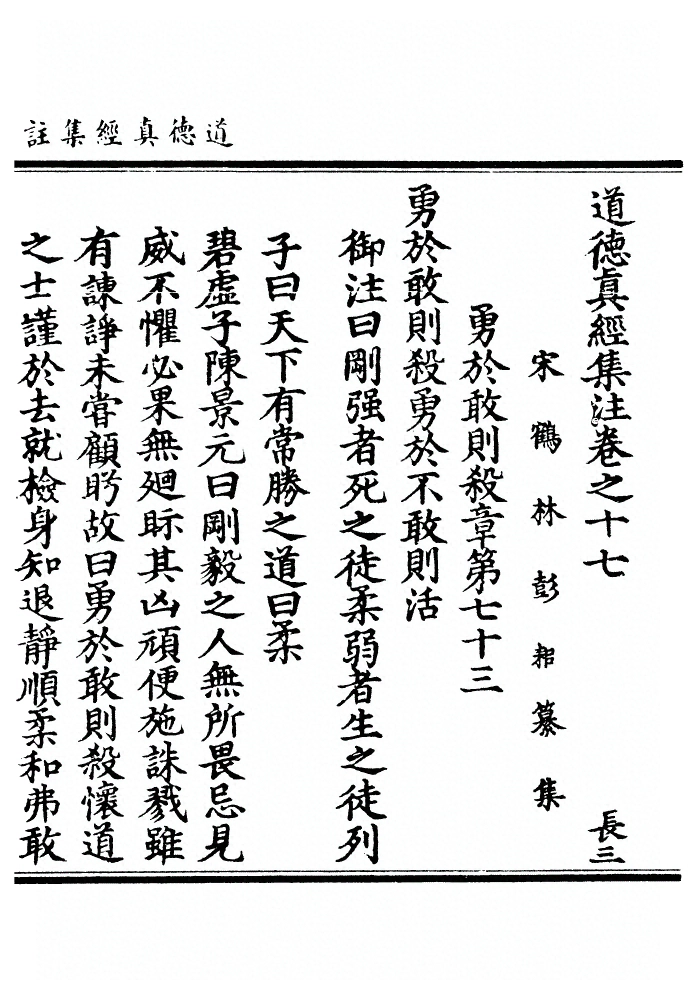 道德真經集註
道德眞經集注卷之十七 長三
宋鶴林彭耜纂集
勇於敢則殺章第七十三
勇於敢則殺勇於不敢則活
御注曰剛强者死之徒柔弱者生之徒列
子曰天下有常勝之道曰柔
碧虛子陳景元曰剛毅之人無所畏忌見
威不懼必果無廻眎其凶頑便施誅戮雖
有諫諍未甞顧眄故曰勇於敢則殺懷道
之士謹於去就檢身知退靜順柔和弗敢